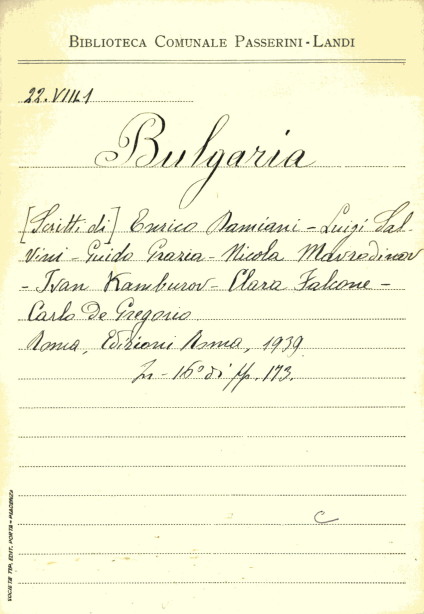 BIBLIOTECA COMUNALE PASSERINI-LANDI
22.VIII.1
Bulgaria
[Scritti di] Enrico Damiani - Luigi Sal-
vini - Guido Grazia - Nicola Mavrodinov
- Ivan Kamburov - Clara Falcone -
Carlo De Gregorio.
Roma, Edizioni Roma, 1939.
In-16° di pp. 173.
C
SOCIETÀ TIP. EDIT. PORTA - PIACENZA